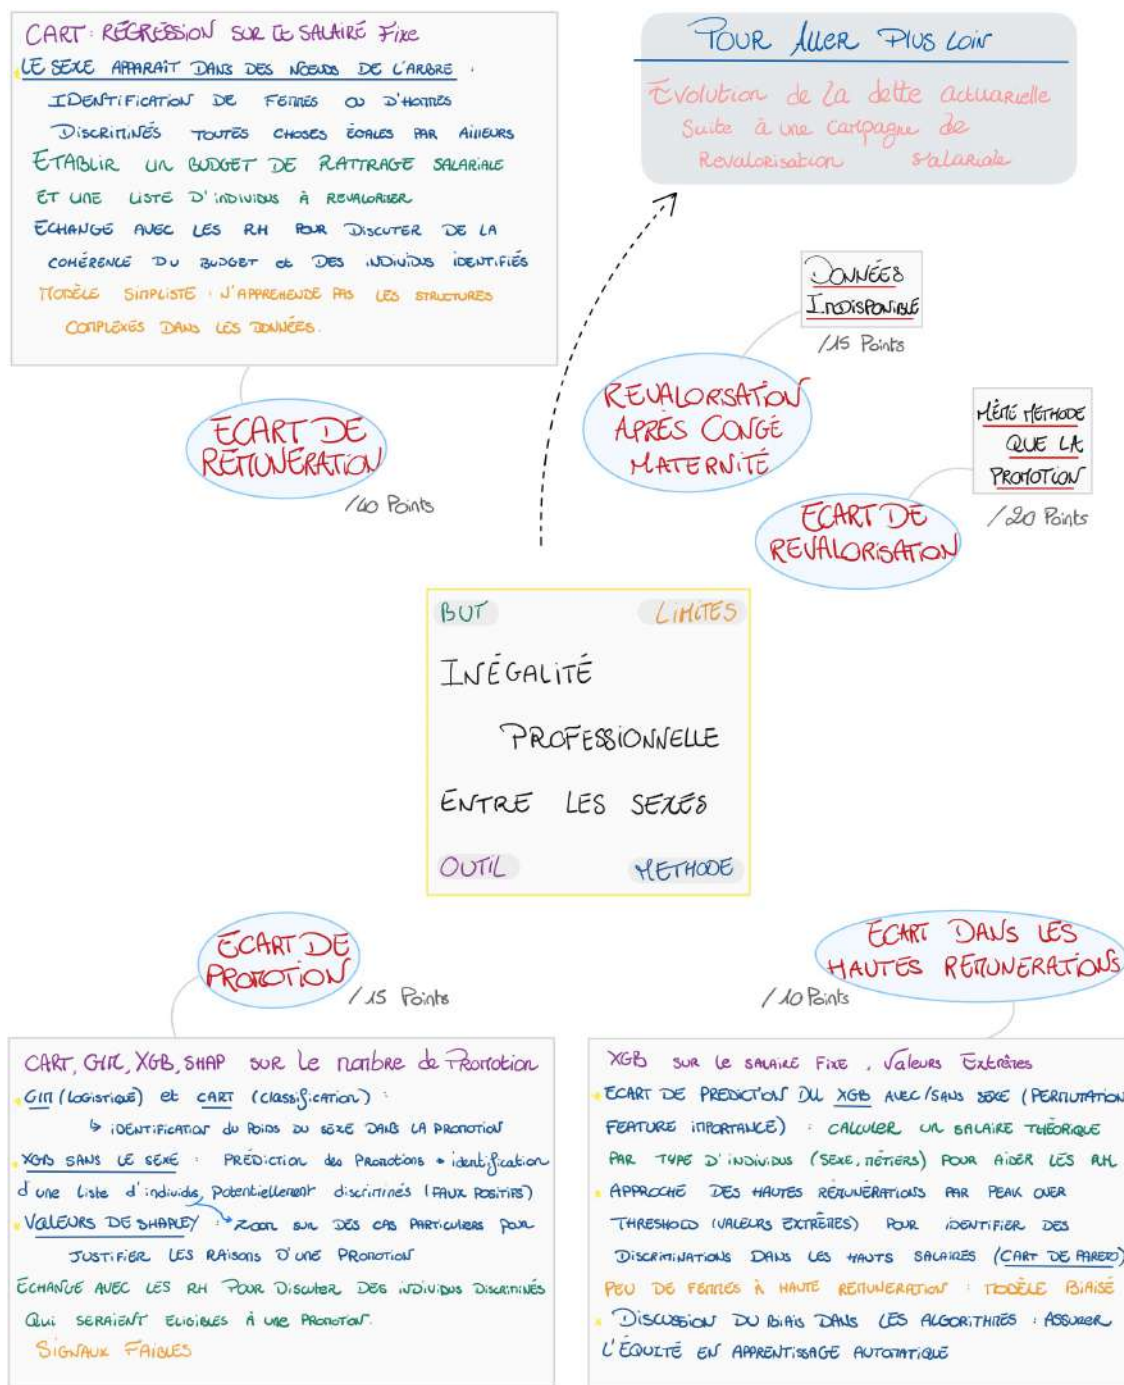 CART : RÉGRESSION SUR LE SALAIRE Fixe
LE SEXE APPARAIT DANS DES NŒUDS DE L'ARBRE :
IDENTIFICATION DE FEMMES OU D'HOMMES
DISCRIMINÉS TOUTES CHOSES ÉGALES PAR AILLEURS
ETABLIR UN BUDGET DE RATTRAGE SALARIALE
ET UNE LISTE D'INDIVIDUS À REVALORISER
ECHANGE AVEC LES RH POUR DISCUTER DE LA
COHÉRENCE DU BUDGET et DES INDIVIDUS IDENTIFIÉS
MODÈLE SIMPLISTE : N'APPREHENDE PAS LES STRUCTURES
COMPLEXES DANS LES DONNÉES.
ECART DE
REMUNÉRATION
/40 Points
POUR Aller PLUS LOIN
Evolution de la dette actuarielle
Suite à une campagne de
Revalorisation salariale
DONNÉES
INDISPONIBLE
/15 Points
REVALORISATION
APRÈS CONGÉ
MATERNITÉ
MÊME METHODE
QUE LA
PROMOTION
/20 Points
ECART DE
REVALORISATION
BUT LIMITES
INÉGALITÉ
PROFESSIONNELLE
ENTRE LES SEXES
OUTIL METHODE
ECART DE
PROMOTION
/15 Points
CART, GLM, XGB, SHAP SUR Le nombre de Promotion
GLM (LOGISTIQUE) et CART (classification) :
↳ IDENTIFICATION du POIDS DU SEXE DANS LA PROMOTION
XGB SANS LE SEXE : PRÉDICTION des PROMOTIONS + identification
d'une liste d'individus, potentiellement discriminés (FAUX POSITIFS)
VALEURS DE SHAPLEY : ZOOM SUR DES CAS PARTICULIERS POUR
JUSTIFIER LES RAISONS D'UNE PROMOTION
ECHANGE AVEC LES RH POUR Discuter DES INDIVIDUS DISCRIMINÉS
Qui SERAIENT ELIGIBLES À une PROMOTION.
SIGNAUX FAIBLES
ECART DANS LES
HAUTES REMUNERATIONS
/10 Points
XGB SUR LE SALAIRE FIXE , Valeurs Extrêmes
ECART DE PREDICTION DU XGB AVEC/SANS SEXE (PERMUTATION
FEATURE IMPORTANCE) : CALCULER UN SALAIRE THÉORIQUE
PAR TYPE D'INDIVIDUS (SEXE, MÉTIERS) POUR AIDER LES RH.
APPROCHE DES HAUTES RÉMUNÉRATIONS PAR PEAK OVER
THRESHOLD (VALEURS EXTRÊMES) POUR IDENTIFIER DES
DISCRIMINATIONS DANS LES HAUTS SALAIRES (CART DE PARETO)
PEU DE FEMMES À HAUTE REMUNERATION : MODÈLE BIAISÉ
DISCUSSION DU BIAIS DANS LES ALGORITHMES : ASSURER
L'ÉQUITÉ EN APPRENTISSAGE AUTOMATIQUE